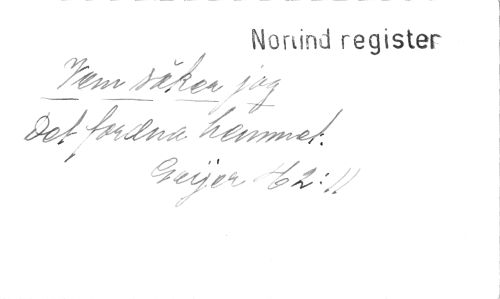 Norlind register
Vem söker jag
Det fordna hemmet.
Geijer H 2:11